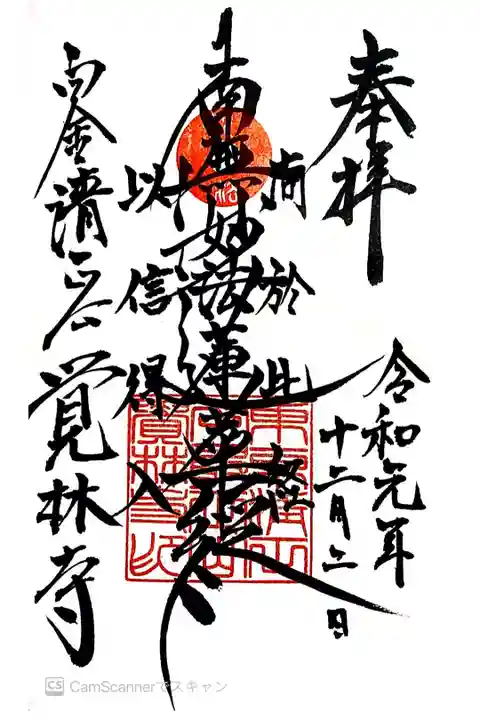 奉拝
令和元年
十二月二日
尚於此経
南無妙法蓮華経
以信得入
白金清正公
覚林寺
CamScannerでスキャン